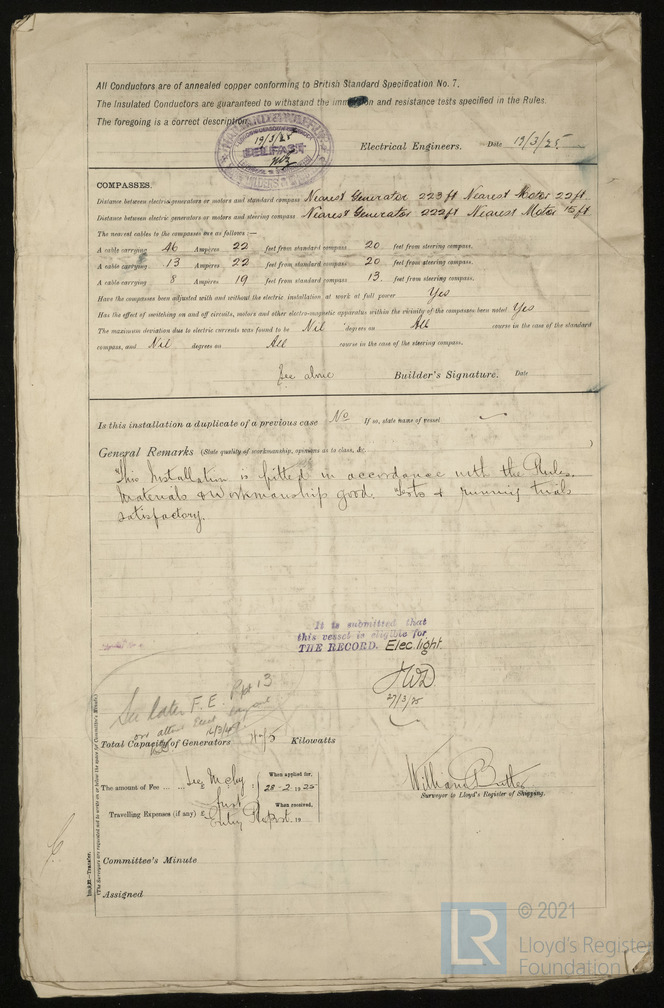 All Conductors are of annealed copper conforming to British Standard Specification No. 7.
The Insulated Conductors are guaranteed to withstand the immersion and resistance tests specified in the Rules.
The foregoing is a correct description,
19/3/25
BELFAST
Electrical Engineers. Date 19/3/25
COMPASSES.
Distance between electric generators or motors and standard compass Nearest Generator 223 ft Nearest Motor 22 ft.
Distance between electric generators or motors and steering compass Nearest Generator 222 ft Nearest Motor 15 ft
The nearest cables to the compasses are as follows :—
A cable carrying 46 Amperes 22 feet from standard compass 20 feet from steering compass.
A cable carrying 13 Amperes 22 feet from standard compass 20 feet from steering compass.
A cable carrying 8 Amperes 19 feet from standard compass 13. feet from steering compass.
Have the compasses been adjusted with and without the electric installation at work at full power Yes
Has the effect of switching on and off circuits, motors and other electro-magnetic apparatus within the vicinity of the compasses been noted Yes
The maximum deviation due to electric currents was found to be Nil degrees on All course in the case of the standard
compass, and Nil degrees on All course in the case of the steering compass.
See above Builder's Signature. Date
Is this installation a duplicate of a previous case No If so, state name of vessel
General Remarks (State quality of workmanship, opinions as to class, &c.
This Installation is fitted in accordance with the Rules.
Materials & Workmanship good. Tests & running trials
satisfactory.
It is submitted that
this vessel is eligible for
THE RECORD. Elec light.
JWD
27/3/25
See later F.E. Rpt 13
Total Capacity of Generators Kilowatts
The amount of Fee ... When applied for, 28-2-1925
Travelling Expenses (if any) £ When received, 19
First
Entry Report.
William Butler
Surveyor to Lloyd's Register of Shipping.
Committee's Minute
Assigned
(The Surveyors are requested not to write on or below the space for Committee's Minute.)
© 2021
LR
Lloyd's Register
Foundation